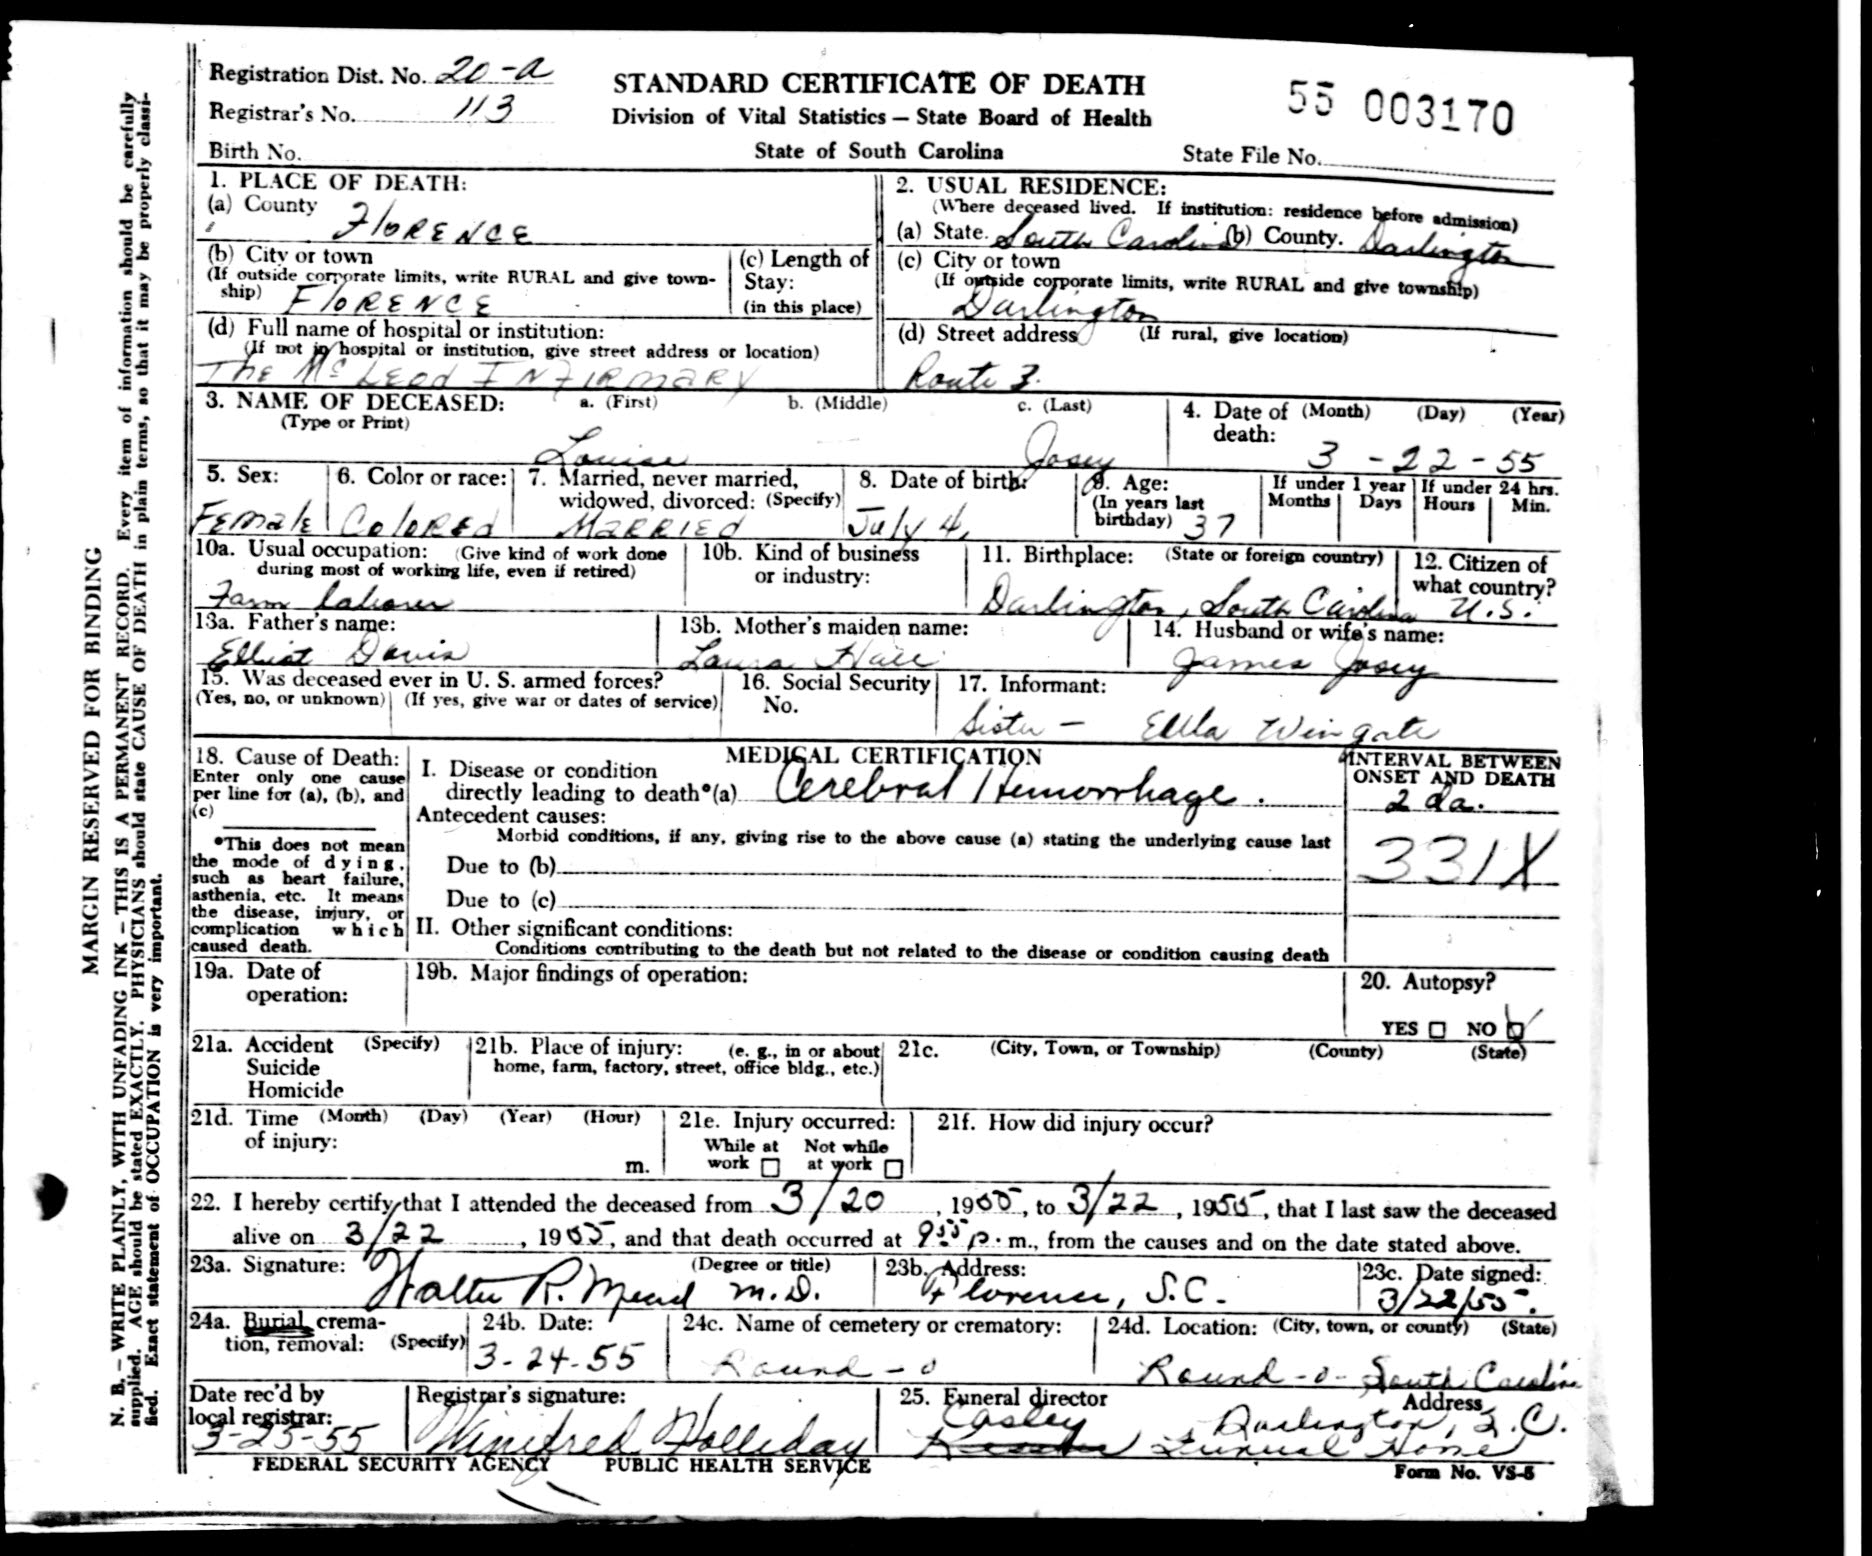 Registration Dist. No. 20-a
Registrar's No. 113
Birth No.
STANDARD CERTIFICATE OF DEATH
Division of Vital Statistics – State Board of Health
State of South Carolina
55 003170
State File No.
MARGIN RESERVED FOR BINDING
N. B. – WRITE PLAINLY, WITH UNFADING INK – THIS IS A PERMANENT RECORD. Every item of information should be carefully
supplied. AGE should be stated EXACTLY. PHYSICIANS should state CAUSE OF DEATH in plain terms, so that it may be properly classi-
fied. Exact statement of OCCUPATION is very important.
1. PLACE OF DEATH:
(a) County
FLORENCE
(b) City or town
(If outside corporate limits, write RURAL and give town-
ship) FLORENCE
(c) Length of
Stay:
(in this place)
(d) Full name of hospital or institution:
(If not in hospital or institution, give street address or location)
The McLeod INFIRMARY
2. USUAL RESIDENCE:
(Where deceased lived. If institution: residence before admission)
(a) State. South Carolina (b) County. Darlington
(c) City or town
(If outside corporate limits, write RURAL and give township)
Darlington
(d) Street address (If rural, give location)
Route 3.
3. NAME OF DECEASED: a. (First) b. (Middle) c. (Last)
(Type or Print)
Louise Josey
4. Date of (Month) (Day) (Year)
death:
3 - 22 - 55
5. Sex:
Female
6. Color or race:
Colored
7. Married, never married,
widowed, divorced: (Specify)
MARRIED
8. Date of birth:
July 4,
9. Age:
(In years last
birthday) 37
If under 1 year
Months Days
If under 24 hrs.
Hours Min.
10a. Usual occupation: (Give kind of work done
during most of working life, even if retired)
Farm Laborer
10b. Kind of business
or industry:
11. Birthplace: (State or foreign country)
Darlington, South Carolina
12. Citizen of
what country?
U.S.
13a. Father's name:
Elliot Davis
13b. Mother's maiden name:
Laura Hall
14. Husband or wife's name:
James Josey
15. Was deceased ever in U. S. armed forces?
(Yes, no, or unknown) (If yes, give war or dates of service)
16. Social Security
No.
17. Informant:
Sister – Ella Wingate
18. Cause of Death:
Enter only one cause
per line for (a), (b), and
(c)
*This does not mean
the mode of dying,
such as heart failure,
asthenia, etc. It means
the disease, injury, or
complication which
caused death.
MEDICAL CERTIFICATION
I. Disease or condition
directly leading to death*(a) Cerebral Hemorrhage.
Antecedent causes:
Morbid conditions, if any, giving rise to the above cause (a) stating the underlying cause last
Due to (b)
Due to (c)
II. Other significant conditions:
Conditions contributing to the death but not related to the disease or condition causing death
INTERVAL BETWEEN
ONSET AND DEATH
2 da.
331X
19a. Date of
operation:
19b. Major findings of operation:
20. Autopsy?
YES NO
21a. Accident (Specify)
Suicide
Homicide
21b. Place of injury: (e. g., in or about
home, farm, factory, street, office bldg., etc.)
21c. (City, Town, or Township) (County) (State)
21d. Time (Month) (Day) (Year) (Hour)
of injury:
m.
21e. Injury occurred:
While at Not while
work at work
21f. How did injury occur?
22. I hereby certify that I attended the deceased from 3/20, 1955, to 3/22, 1955, that I last saw the deceased
alive on 3/22, 1955, and that death occurred at 9:55 p. m., from the causes and on the date stated above.
23a. Signature: (Degree or title)
Walter R. Mead M.D.
23b. Address:
Florence, S.C.
23c. Date signed:
3/22/55.
24a. Burial, crema-
tion, removal: (Specify)
24b. Date:
3-24-55
24c. Name of cemetery or crematory:
Round - o
24d. Location: (City, town, or county) (State)
Round -o- South Carolina
Date rec'd by
local registrar:
3-25-55
Registrar's signature:
Winifred Holliday
25. Funeral director Address
Easley Darlington, S.C.
Funeral Home
FEDERAL SECURITY AGENCY PUBLIC HEALTH SERVICE
Form No. VS-5